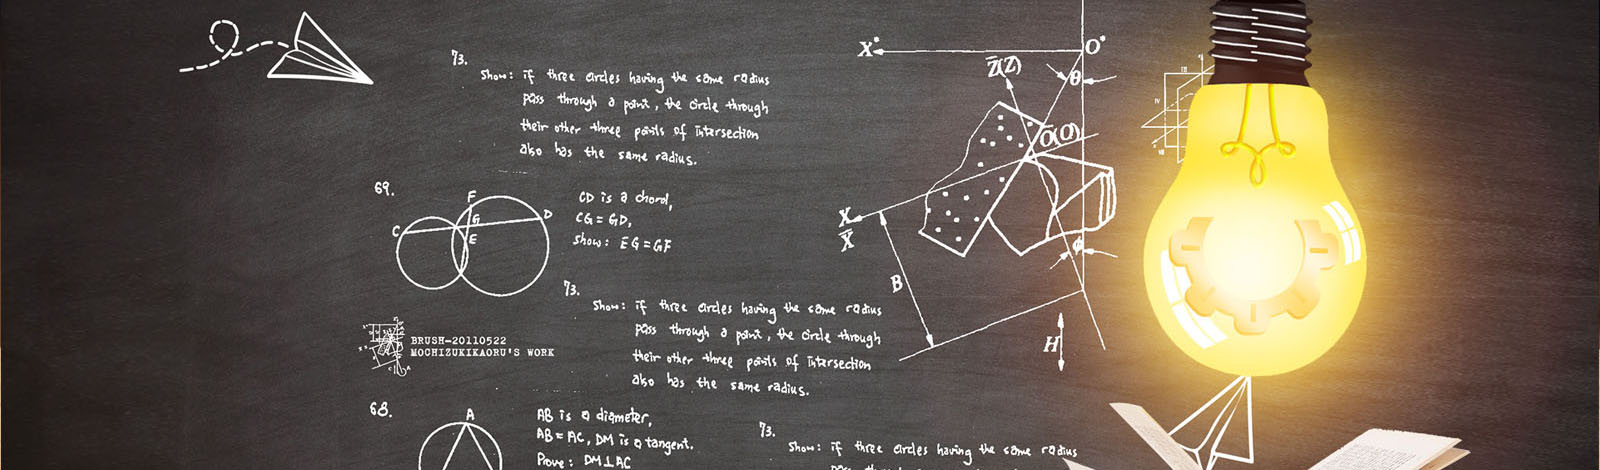 73.
Show: if three circles having the same radius
pass through a point, the circle through
their other three points of intersection
also has the same radius.
69.
F
G
D
C
E
CD is a chord,
CG = GD,
Show: EG = GF
73.
Show: if three circles having the same radius
pass through a point, the circle through
their other three points of intersection
also has the same radius.
BRUSH-20110522
MOCHIZUKIKAORU'S WORK
68.
A
AB is a diameter,
AB = AC, DM is a tangent.
Prove: DM⊥AC
73.
Show: if three circles having the same radius
X*
O*
Z̅(Z)
θ
O̅(O)
X
X̅
B
ϕ
H